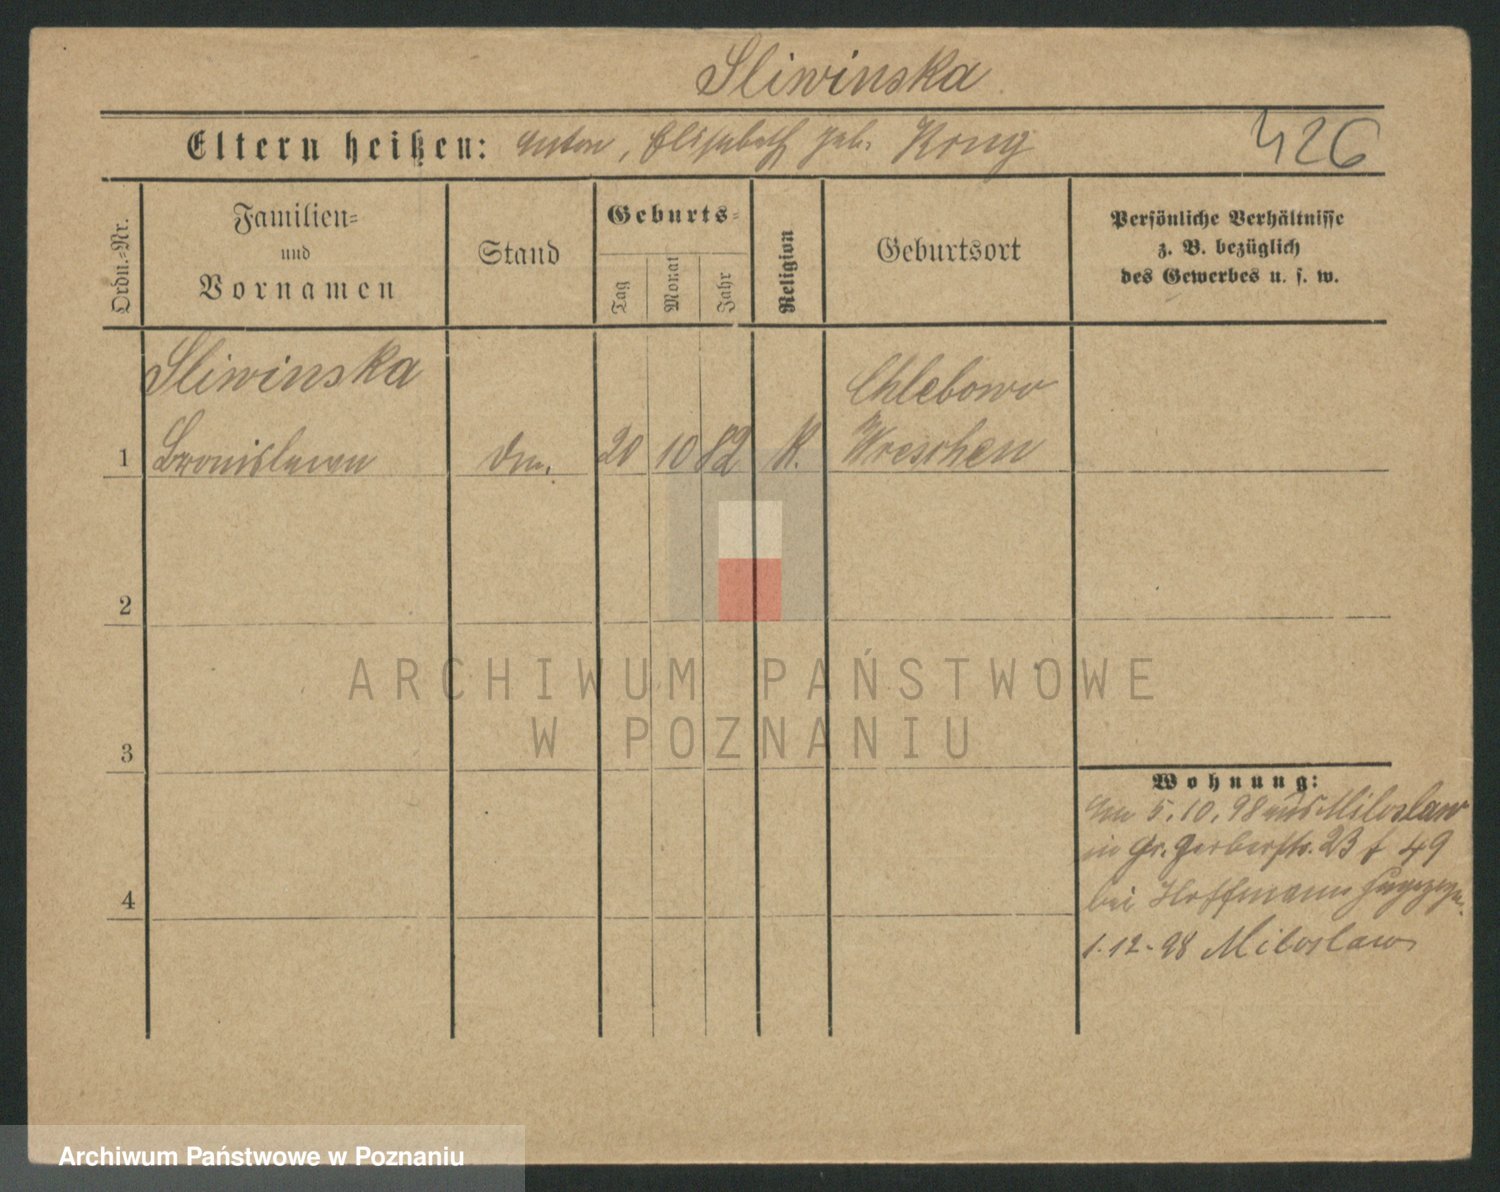 Sliwinska
Eltern heißen: Anton, Elisabeth geb. Krug
426
Ordn.-Nr.
Familien-
und
Vornamen
Stand
Geburts-
Tag
Monat
Jahr
Religion
Geburtsort
Persönliche Verhältnisse
z. B. bezüglich
des Gewerbes u. s. w.
Sliwinska
Chlebowo
1 Bronislawa 20 10 82 K. Wreschen
2
ARCHIWUM PAŃSTWOWE
W POZNANIU
3
Wohnung:
5.10.98 aus Miloslaw
in Gr. Gerberstr. 23 f 49
4
bei Hoffmann
1.12.98 Miloslaw
Archiwum Państwowe w Poznaniu